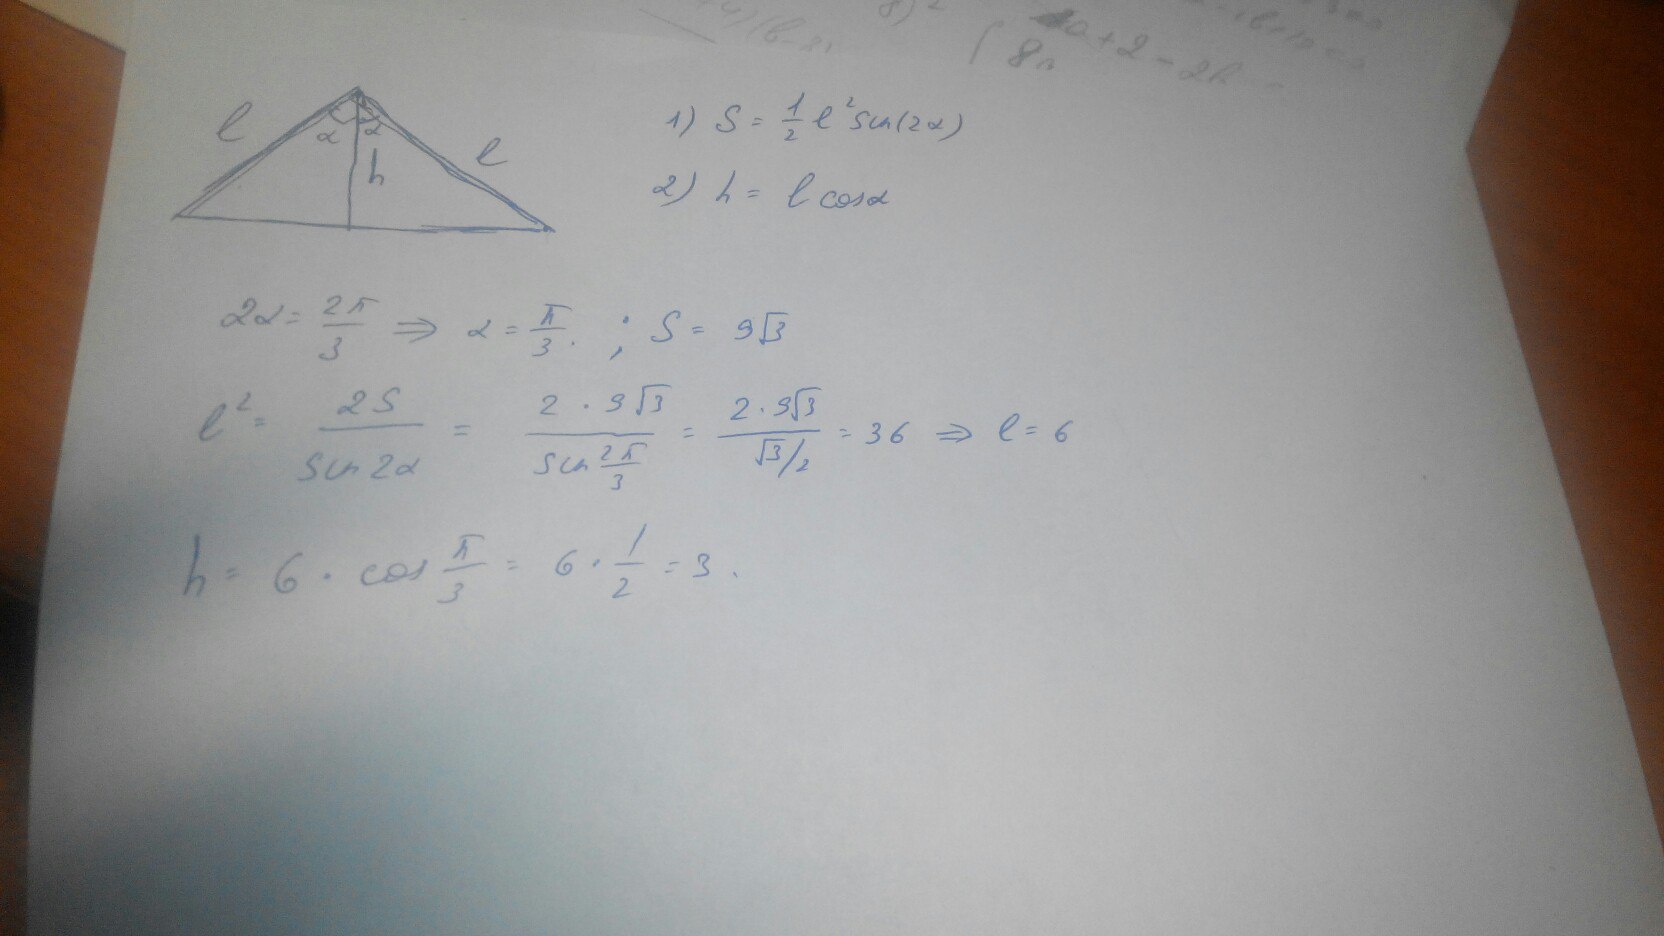 8)²
8
a+2-2
l
α
α
h
l
1) S = 1/2 l² sin(2α)
2) h = l cosα
2α = 2π/3 ⇒ α = π/3. ; S = 9√3
l² = 2S/sin2α = 2 · 9√3/sin 2π/3 = 2 · 9√3/√3/2 = 36 ⇒ l = 6
h = 6 · cos π/3 = 6 · 1/2 = 3.